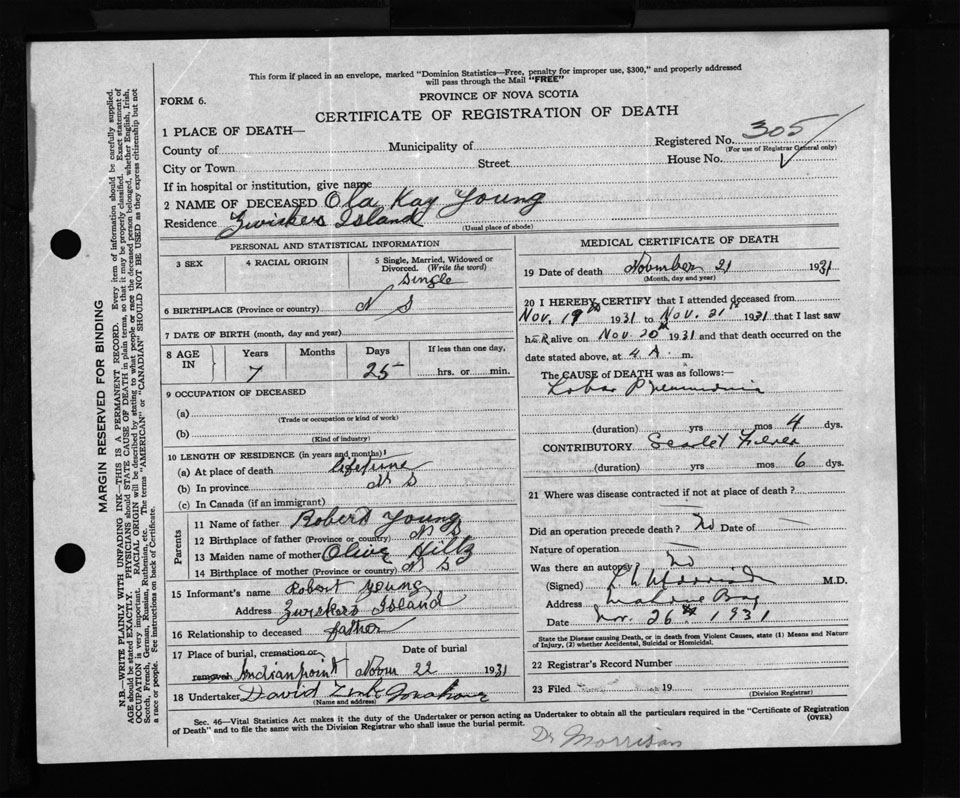 This form if placed in an envelope, marked "Dominion Statistics—Free, penalty for improper use, $300," and properly addressed
will pass through the Mail "FREE"
PROVINCE OF NOVA SCOTIA
FORM 6.
CERTIFICATE OF REGISTRATION OF DEATH
1 PLACE OF DEATH—
Registered No. 305
(For use of Registrar General only)
County of Municipality of
House No.
City or Town Street
If in hospital or institution, give name
2 NAME OF DECEASED Ola Kay Young
Residence Zwickers Island
(Usual place of abode)
PERSONAL AND STATISTICAL INFORMATION
3 SEX 4 RACIAL ORIGIN 5 Single, Married, Widowed or Divorced. (Write the word)
Single
6 BIRTHPLACE (Province or country) N S
7 DATE OF BIRTH (month, day and year)
8 AGE IN Years Months Days If less than one day,
7 25 hrs. or min.
9 OCCUPATION OF DECEASED
(a)
(Trade or occupation or kind of work)
(b)
(Kind of industry)
10 LENGTH OF RESIDENCE (in years and months)
(a) At place of death lifetime
(b) In province N S
(c) In Canada (if an immigrant)
Parents
11 Name of father Robert Young
12 Birthplace of father (Province or country) N S
13 Maiden name of mother Olive Hiltz
14 Birthplace of mother (Province or country) N S
15 Informant's name Robert Young
Address Zwickers Island
16 Relationship to deceased father
17 Place of burial, cremation or removal Date of burial
Indianpoint Novm 22 1931
18 Undertaker David
(Name and address)
MEDICAL CERTIFICATE OF DEATH
19 Date of death November 21 1931
(Month, day and year)
20 I HEREBY CERTIFY that I attended deceased from
Nov. 19th 1931 to Nov. 21st 1931 that I last saw
her alive on Nov 20th 1931 and that death occurred on the
date stated above, at 4 A. m.
The CAUSE of DEATH was as follows:
Lobar Pneumonia
(duration) yrs mos 4 dys.
CONTRIBUTORY Scarlet Fever
(duration) yrs mos 6 dys.
21 Where was disease contracted if not at place of death?
Did an operation precede death? No Date of
Nature of operation
Was there an autopsy? No
(Signed) Morrison M.D.
Address Mahone Bay
Date Nov. 26th 1931
State the Disease causing Death, or in death from Violent Causes, state (1) Means and Nature
of Injury, (2) whether Accidental, Suicidal or Homicidal.
22 Registrar's Record Number
23 Filed 19
(Division Registrar)
Sec. 46—Vital Statistics Act makes it the duty of the Undertaker or person acting as Undertaker to obtain all the particulars required in the "Certificate of Registration
of Death" and to file the same with the Division Registrar who shall issue the burial permit. (OVER)
Dr Morrison
MARGIN RESERVED FOR BINDING
N.B.—WRITE PLAINLY WITH UNFADING INK—THIS IS A PERMANENT RECORD. Every item of information should be carefully supplied.
AGE should be stated EXACTLY. PHYSICIANS should STATE CAUSE OF DEATH in plain terms, so that it may be properly classified. Exact statement of
OCCUPATION is very important. RACIAL ORIGIN will be described by stating to what people or race the deceased person belonged, whether English, Irish,
Scotch, French, German, Russian, Ruthenian, etc. The terms "AMERICAN" or "CANADIAN" SHOULD NOT BE USED as they express citizenship but not
a race or people. See instructions on back of Certificate.